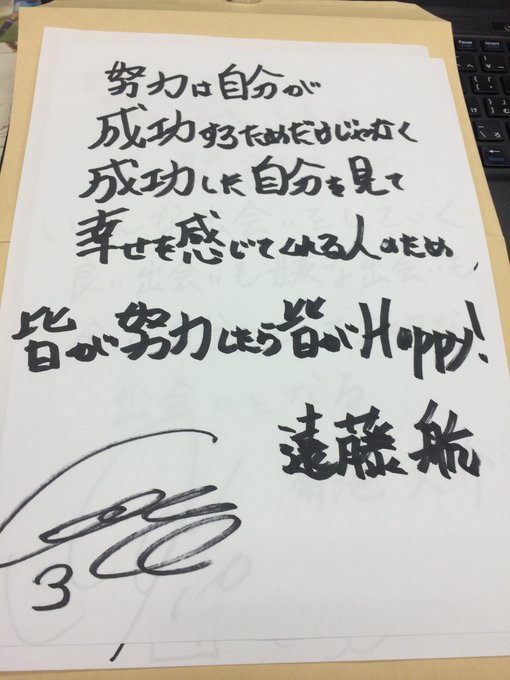 努力は自分が
成功するためだけじゃなく
成功した自分を見て
幸せを感じてくれる人のため
皆が努力したら皆がHappy!
遠藤航
3